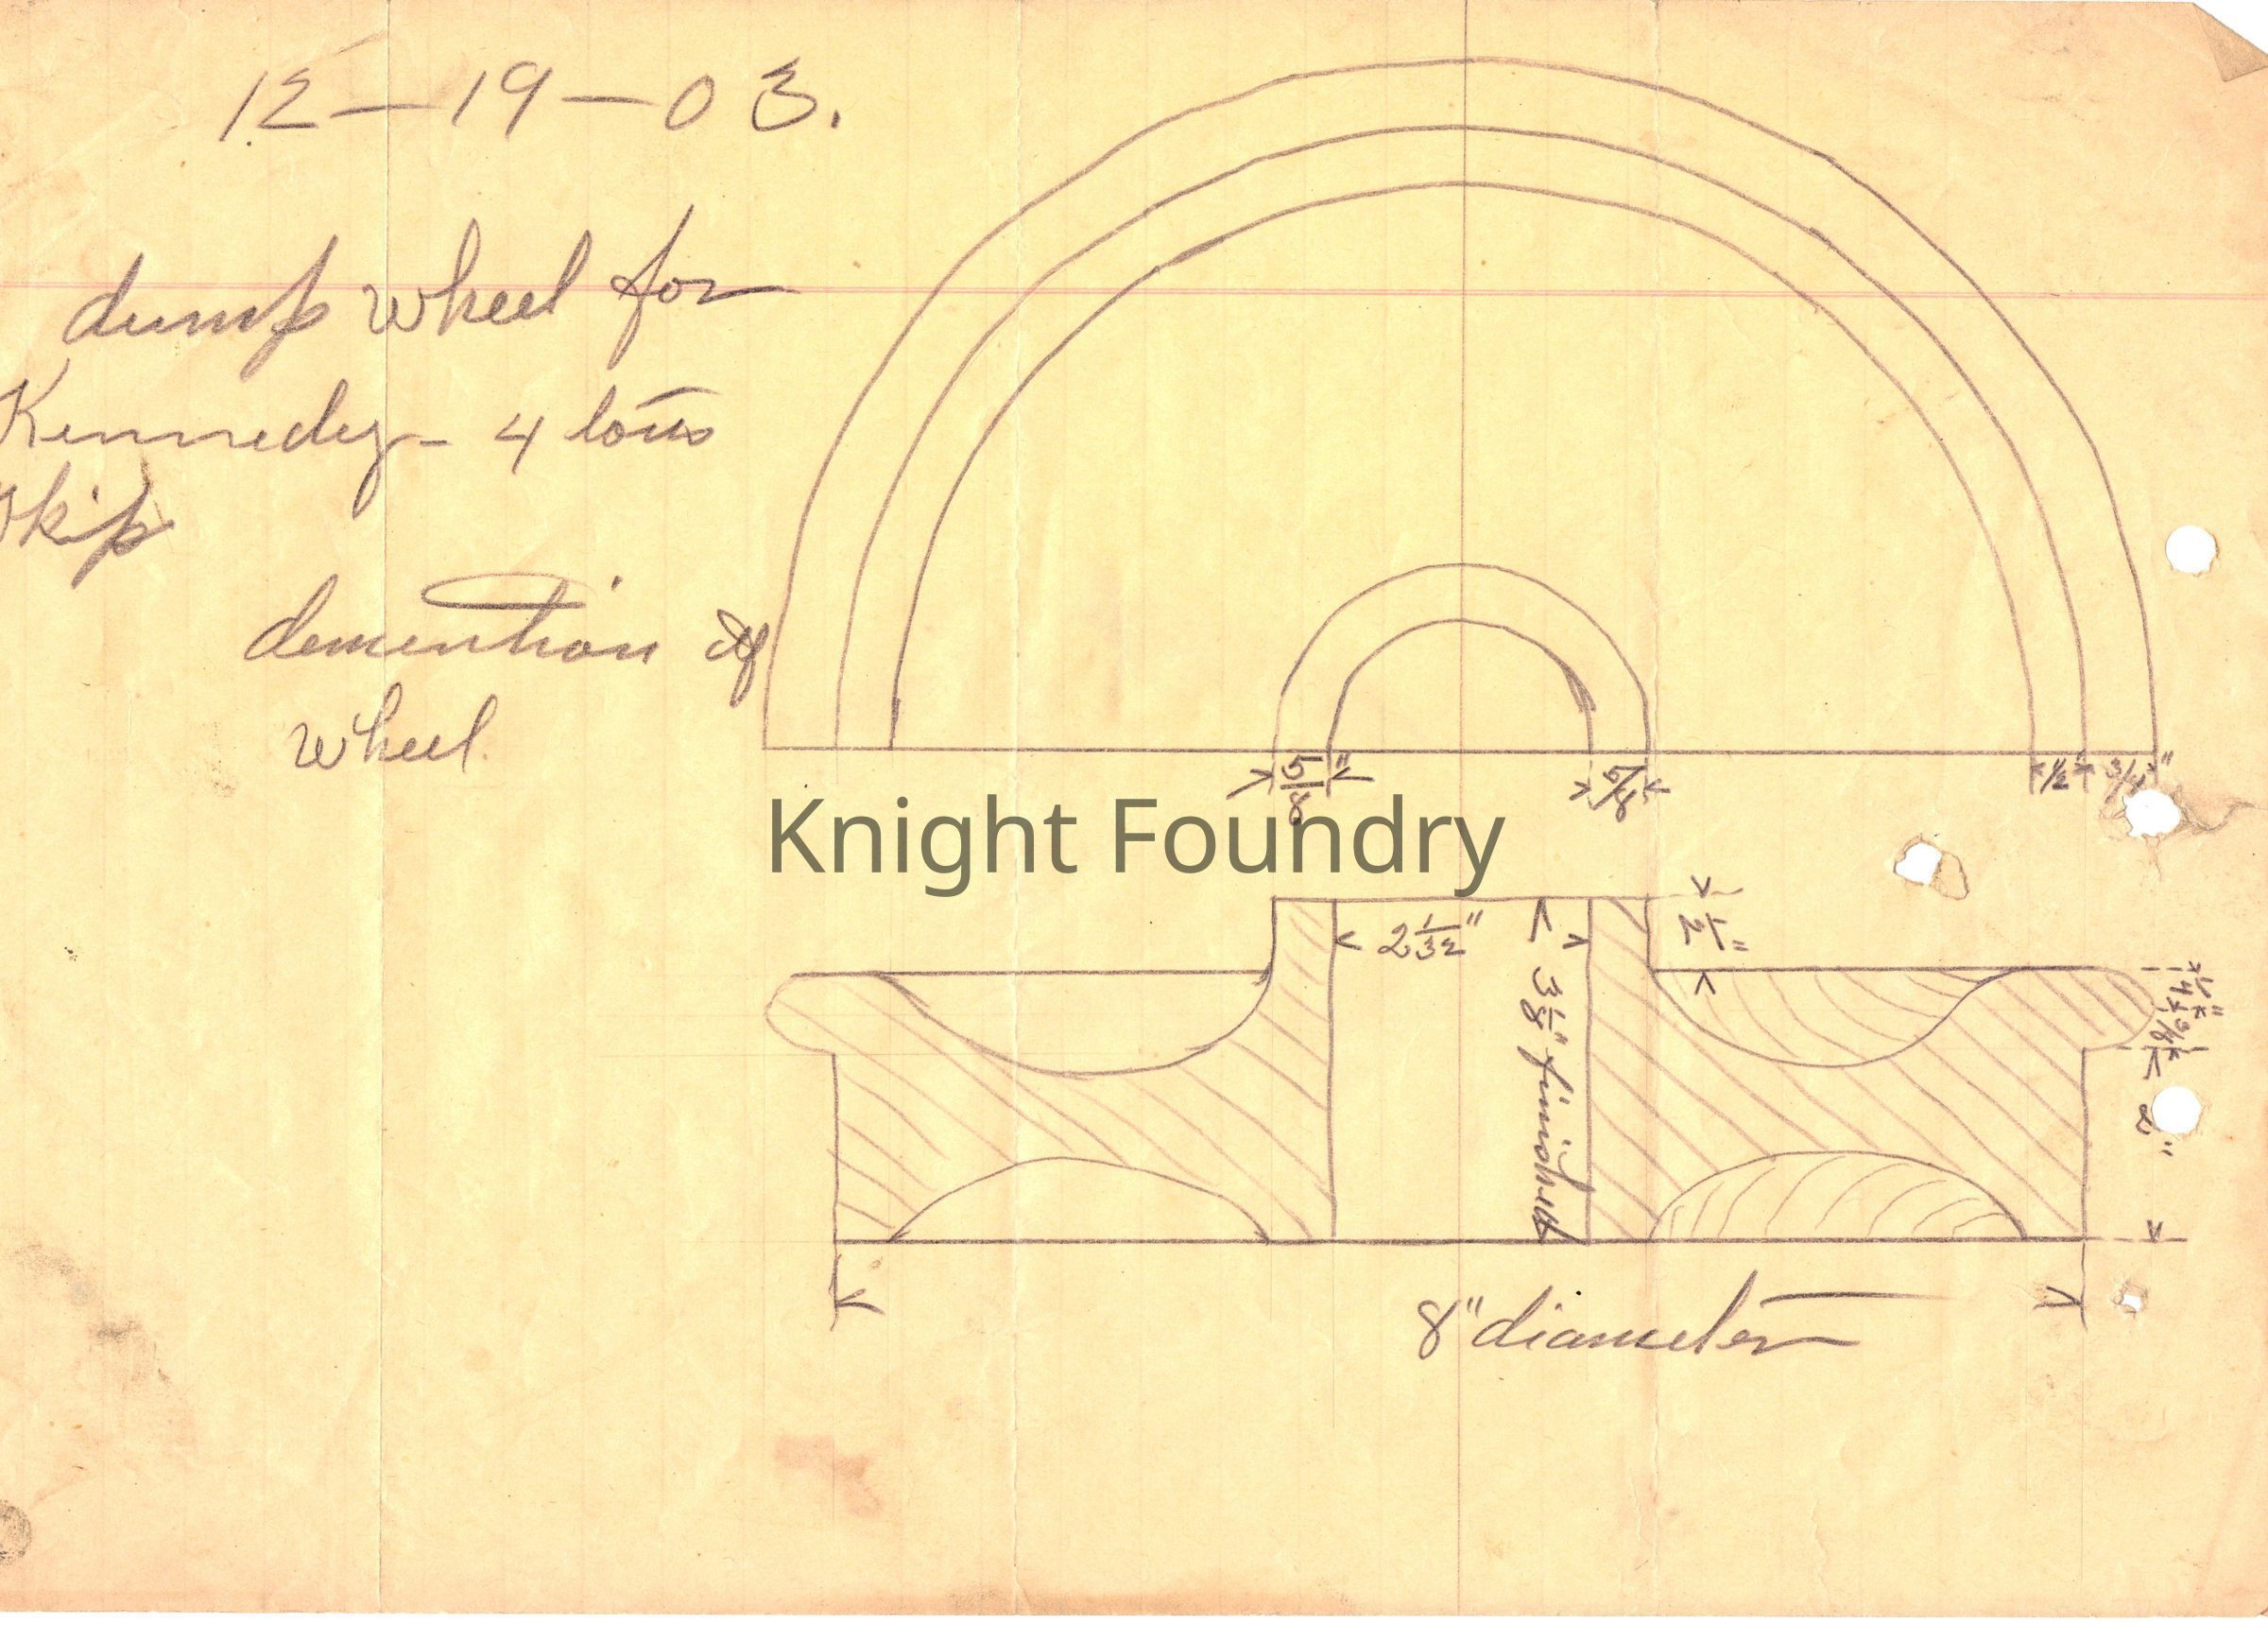 12-19-03.
dump wheel for
Kennedy - 4 tons
Skip
demention of
wheel.
5/8"
5/8"
1/2"
3/4"
Knight Foundry
2 1/32"
1/2"
3 1/8" finished
1/4"
2"
8" diameter